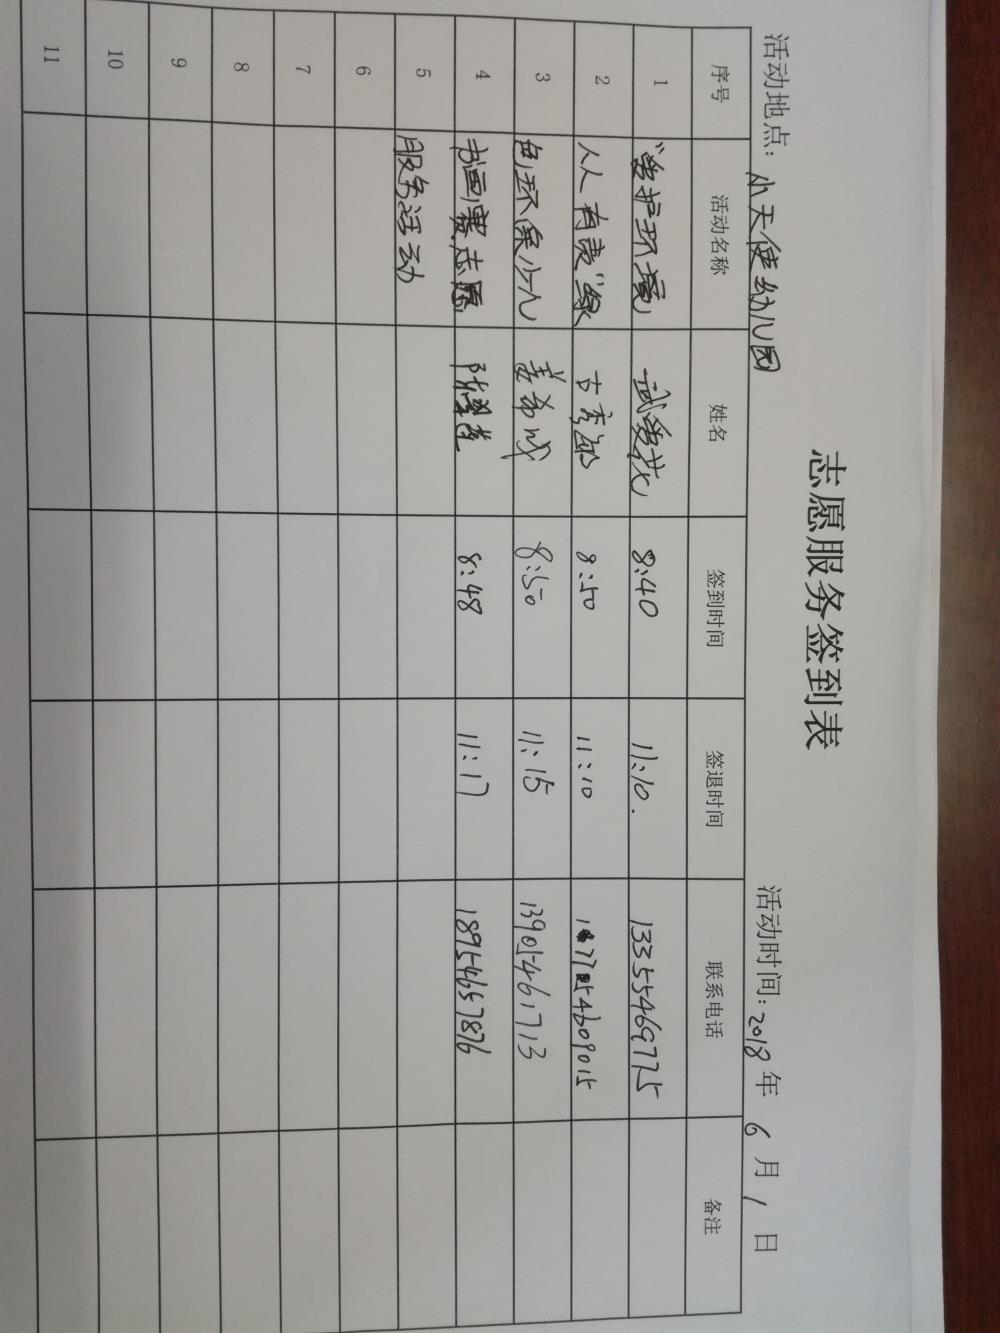 志愿服务签到表
活动地点：小天使幼儿园 活动时间：2018年 6 月 1 日
序号 活动名称 姓名 签到时间 签退时间 联系电话 备注
1 “爱护环境 武爱花 8:40 11:10. 13355469775
2 人人有责”绿 古秀 8:50 11:10
3 色环保少儿 姜希成 8:50 11:15 13905461713
4 书画赛志愿 8:48 11:17 18954657876
5 服务活动
6
7
8
9
10
11